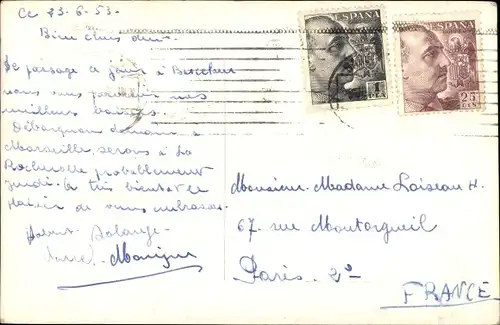 Ce 23-6-53-
Bien chers
de passage ce jour à
vous
meilleurs baisers.
Débarquons demain à
Marseille, serons à La
Rochelle probablement
jeudi. à très bientôt le
plaisir de vous embrasser.
Solange
Monique
ESPAÑA
1
PTA
ESPAÑA
25
CTS
Monsieur-Madame Loiseau H.
67. rue Montorgueil
Paris. 2e
FRANCE